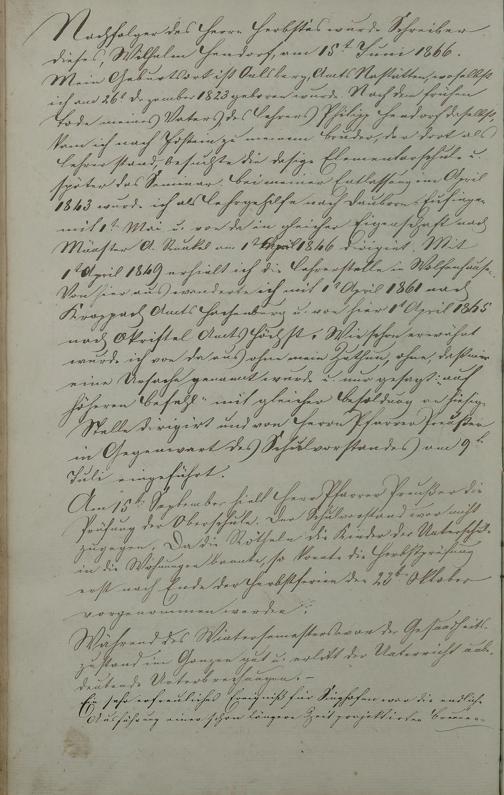 Nachfolger des Herrn Herbstes wurde Schreiber
dieses, Wilhelm Hendorf, am 15t Juni 1866.
Mein Geburtsort ist Aulsberg, Amts Nastätten, woselbst
ich am 26t Dezember 1823 geboren wurde. Nach dem frühen
Tode meines Vaters des Lehrers Philipp Hendorf daselbst,
kam ich nach Idstein zu meinem Bruder, der dort als
Lehrer stand, besuchte die dasige Elementarschule u.
später das Seminar. Bei meiner Entlassung im April
1843 wurde ich als Lehrgehilfe nach
mit 1t Mai u. von da in gleicher Eigenschaft nach
Münster A. Runkel am 1t April 1846 dirigirt. Mit
1t April 1849 erhielt ich die Lehrerstelle in Wolfenhausen.
Von hier aus wanderte ich mit 1t April 1861 nach
Kroppach Amts Hachenburg u. von hier 1t April 1865
nach Okriftel Amts Höchst. Wie schon erwähnt
wurde ich von da aus ohne mein Zuthun, ohne, daß mir
eine Ursache genannt wurde u. nur gesagt: "auf
höheren Befehl" mit gleicher Besoldung an hiesige
Stelle dirigirt und von Herrn Pfarrer Preußer
in Gegenwart des Schulvorstandes am 9t
Juli eingeführt.
Am 15t September hielt Herr Pfarrer Preußer die
Prüfung der Oberschule. Der Schulvorstand war nicht
zugegen. Da die Rötheln die Kinder der Unterschule
in die Wohnungen bannte, so konnte die Herbstprüfung
erst nach Ende der Herbstferien den 23t Oktober
vorgenommen werden.
Während des Wintersemesters war der Gesundheits-
zustand im Ganzen gut u. erlitt der Unterricht unbe-
deutende Unterbrechungen. –
Ein sehr erfreuliches Ereigniß für war die endliche
Ausführung einer schon längere Zeit projektirten